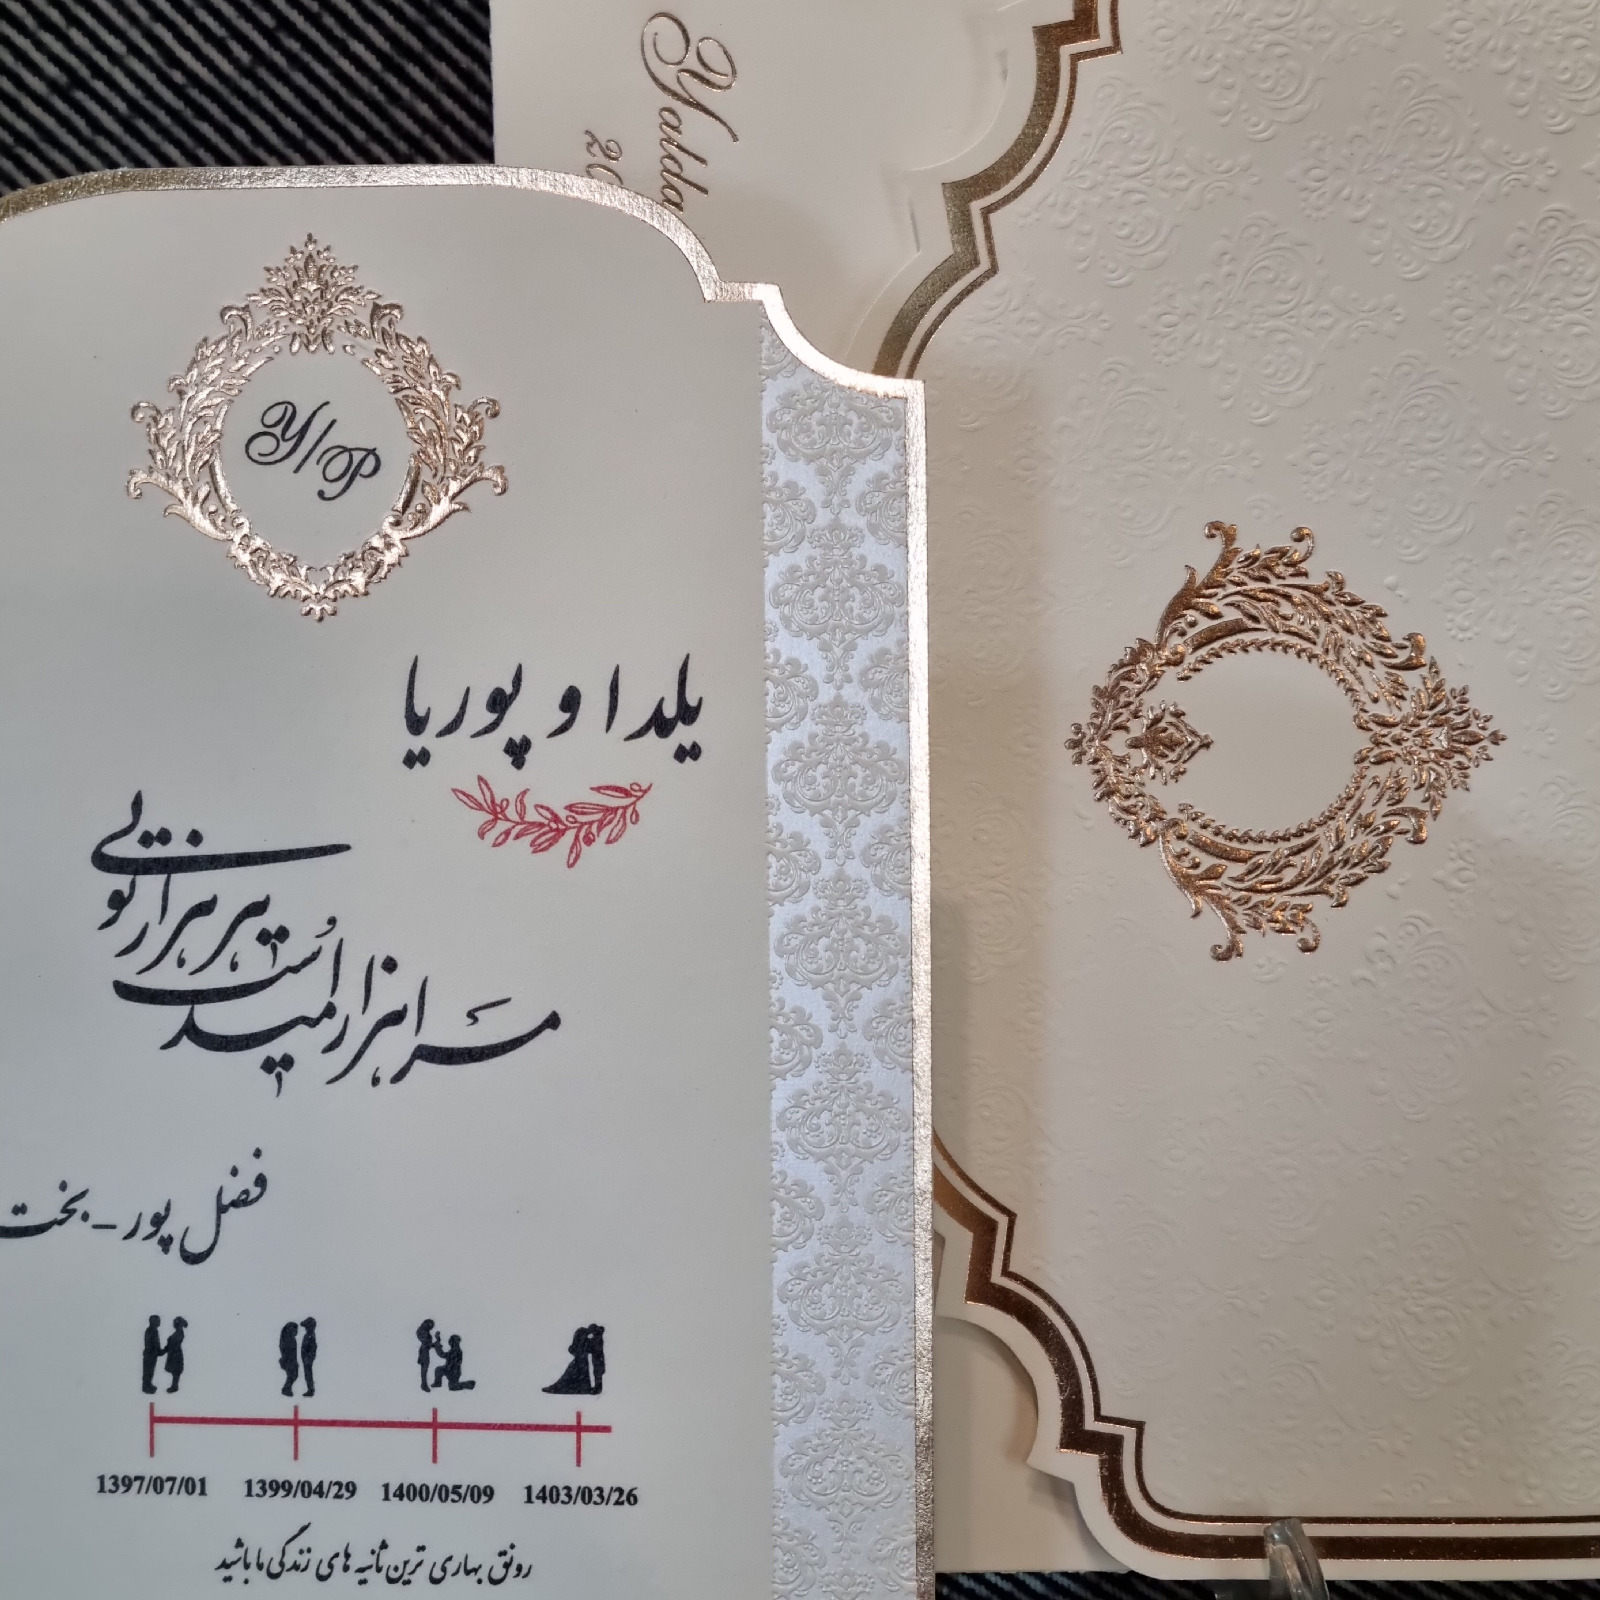 Yalda
20
Y/P
یلدا و پوریا
مرا هزار امید است و هر هزار تویی
فضل پور - بخت
1397/07/01 1399/04/29 1400/05/09 1403/03/26
رونق بهاری ترین ثانیه های زندگی ما باشید